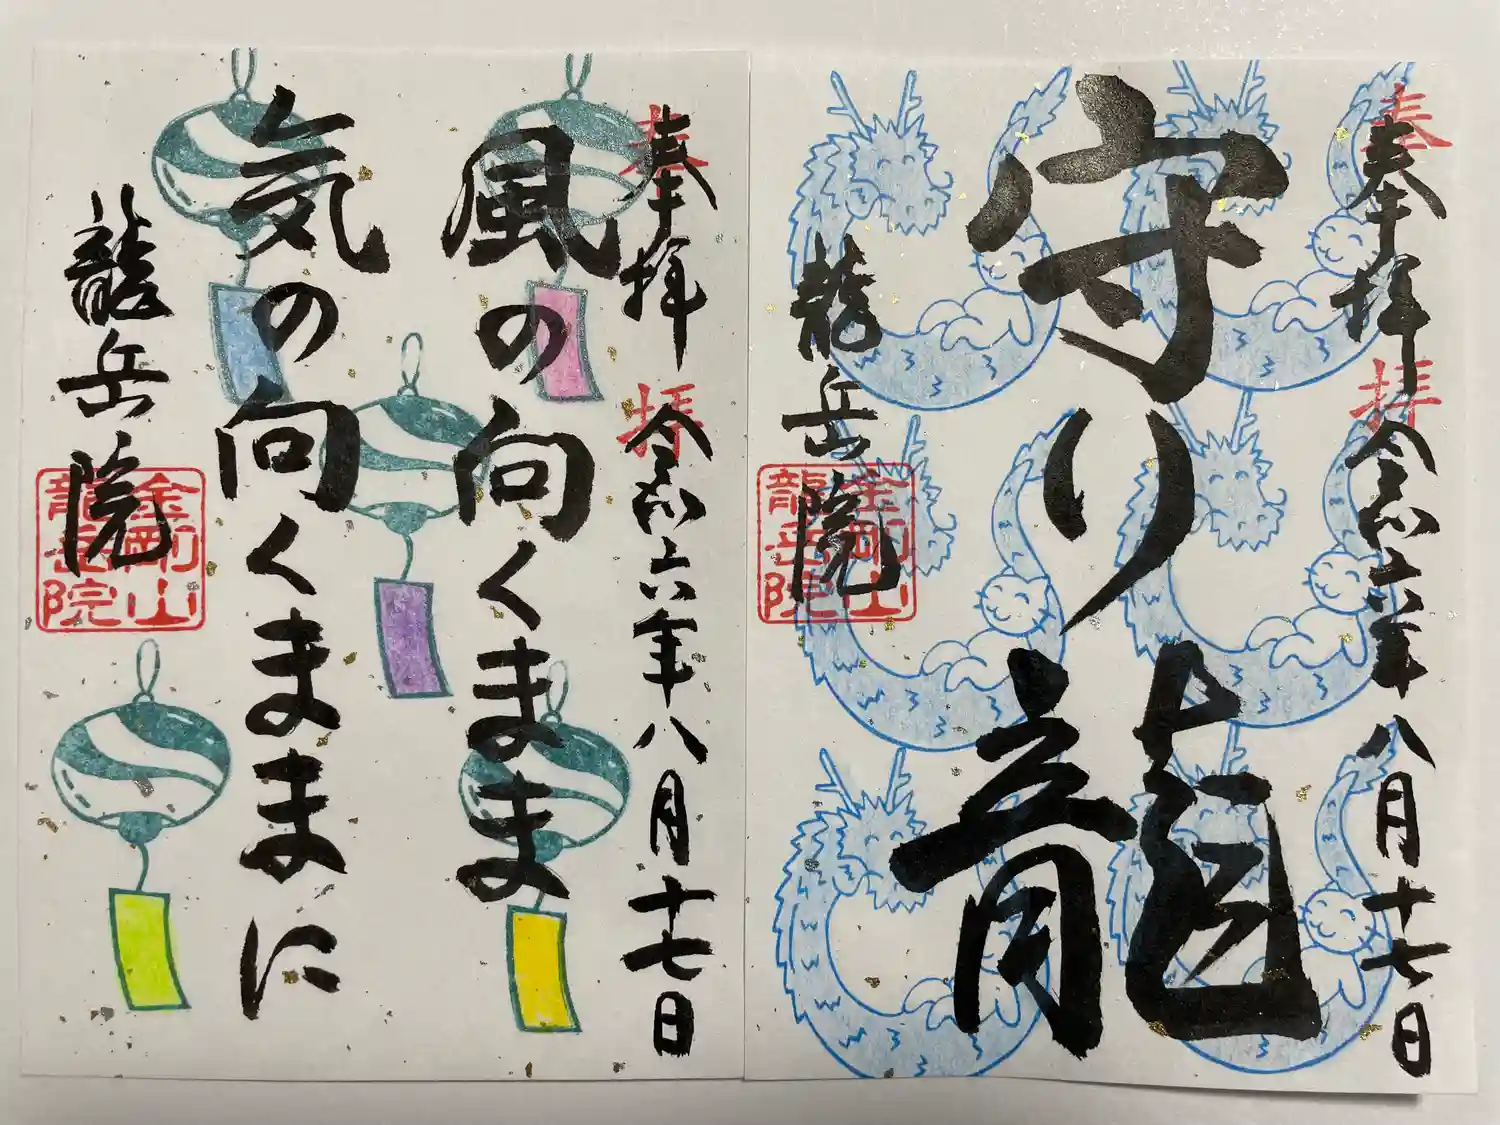 奉拝
守り龍
奉拝 令和六年八月十七日
龍岳院
金剛山
龍岳院
奉拝
奉拝 令和六年八月十七日
風の向くまま
気の向くままに
龍岳院
金剛山
龍岳院